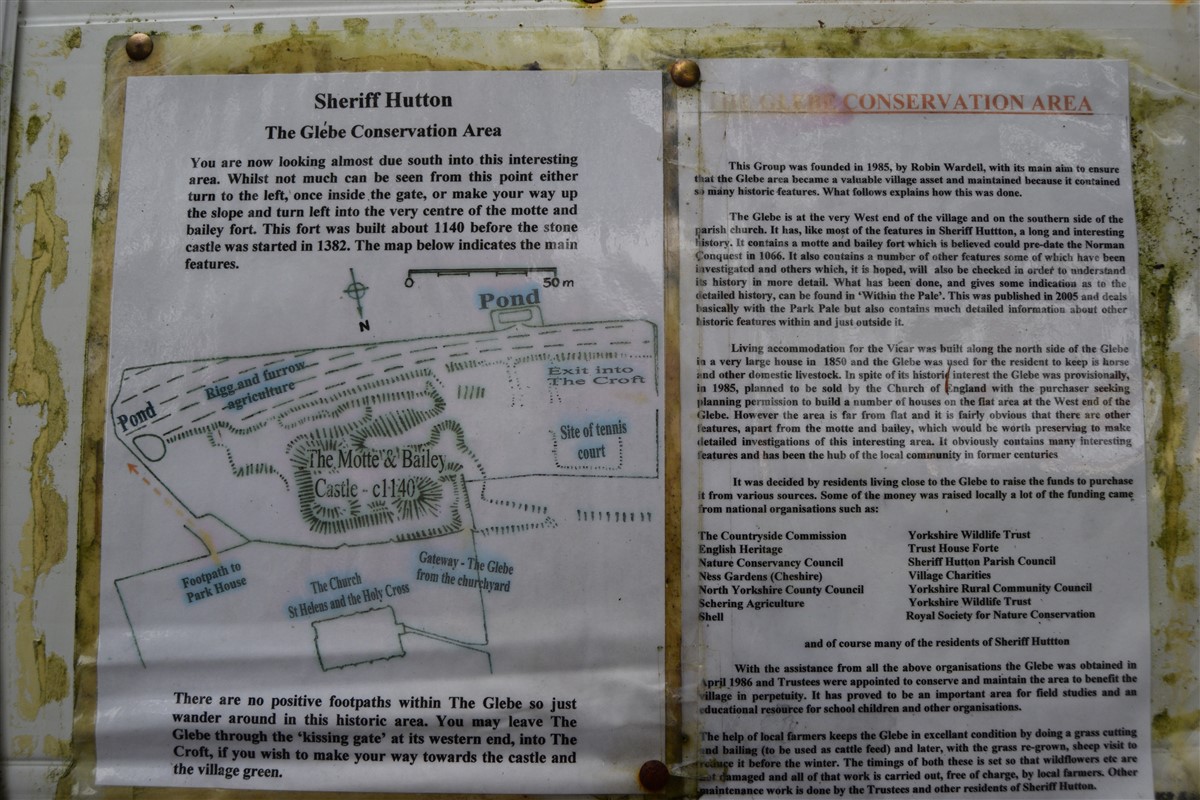 Sheriff Hutton
The Glebe Conservation Area
You are now looking almost due south into this interesting
area. Whilst not much can be seen from this point either
turn to the left, once inside the gate, or make your way up
the slope and turn left into the very centre of the motte and
bailey fort. This fort was built about 1140 before the stone
castle was started in 1382. The map below indicates the main
features.
0 50 m
N
Pond
Rigg and furrow
agriculture
Exit into
The Croft
Pond
Site of tennis
court
The Motte & Bailey
Castle - c1140
Footpath to
Park House
The Church
St Helens and the Holy Cross
Gateway - The Glebe
from the churchyard
There are no positive footpaths within The Glebe so just
wander around in this historic area. You may leave The
Glebe through the 'kissing gate' at its western end, into The
Croft, if you wish to make your way towards the castle and
the village green.
THE GLEBE CONSERVATION AREA
This Group was founded in 1985, by Robin Wardell, with its main aim to ensure
that the Glebe area became a valuable village asset and maintained because it contained
so many historic features. What follows explains how this was done.
The Glebe is at the very West end of the village and on the southern side of the
parish church. It has, like most of the features in Sheriff Huttton, a long and interesting
history. It contains a motte and bailey fort which is believed could pre-date the Norman
Conquest in 1066. It also contains a number of other features some of which have been
investigated and others which, it is hoped, will also be checked in order to understand
its history in more detail. What has been done, and gives some indication as to the
detailed history, can be found in 'Within the Pale'. This was published in 2005 and deals
basically with the Park Pale but also contains much detailed information about other
historic features within and just outside it.
Living accommodation for the Vicar was built along the north side of the Glebe
in a very large house in 1850 and the Glebe was used for the resident to keep is horse
and other domestic livestock. In spite of its historic interest the Glebe was provisionally,
in 1985, planned to be sold by the Church of England with the purchaser seeking
planning permission to build a number of houses on the flat area at the West end of the
Glebe. However the area is far from flat and it is fairly obvious that there are other
features, apart from the motte and bailey, which would be worth preserving to make
detailed investigations of this interesting area. It obviously contains many interesting
features and has been the hub of the local community in former centuries
It was decided by residents living close to the Glebe to raise the funds to purchase
it from various sources. Some of the money was raised locally a lot of the funding came
from national organisations such as:
The Countryside Commission Yorkshire Wildlife Trust
English Heritage Trust House Forte
Nature Conservancy Council Sheriff Hutton Parish Council
Ness Gardens (Cheshire) Village Charities
North Yorkshire County Council Yorkshire Rural Community Council
Schering Agriculture Yorkshire Wildlife Trust
Shell Royal Society for Nature Conservation
and of course many of the residents of Sheriff Huttton
With the assistance from all the above organisations the Glebe was obtained in
April 1986 and Trustees were appointed to conserve and maintain the area to benefit the
village in perpetuity. It has proved to be an important area for field studies and an
educational resource for school children and other organisations.
The help of local farmers keeps the Glebe in excellant condition by doing a grass cutting
and bailing (to be used as cattle feed) and later, with the grass re-grown, sheep visit to
reduce it before the winter. The timings of both these is set so that wildflowers etc are
not damaged and all of that work is carried out, free of charge, by local farmers. Other
maintenance work is done by the Trustees and other residents of Sheriff Hutton.